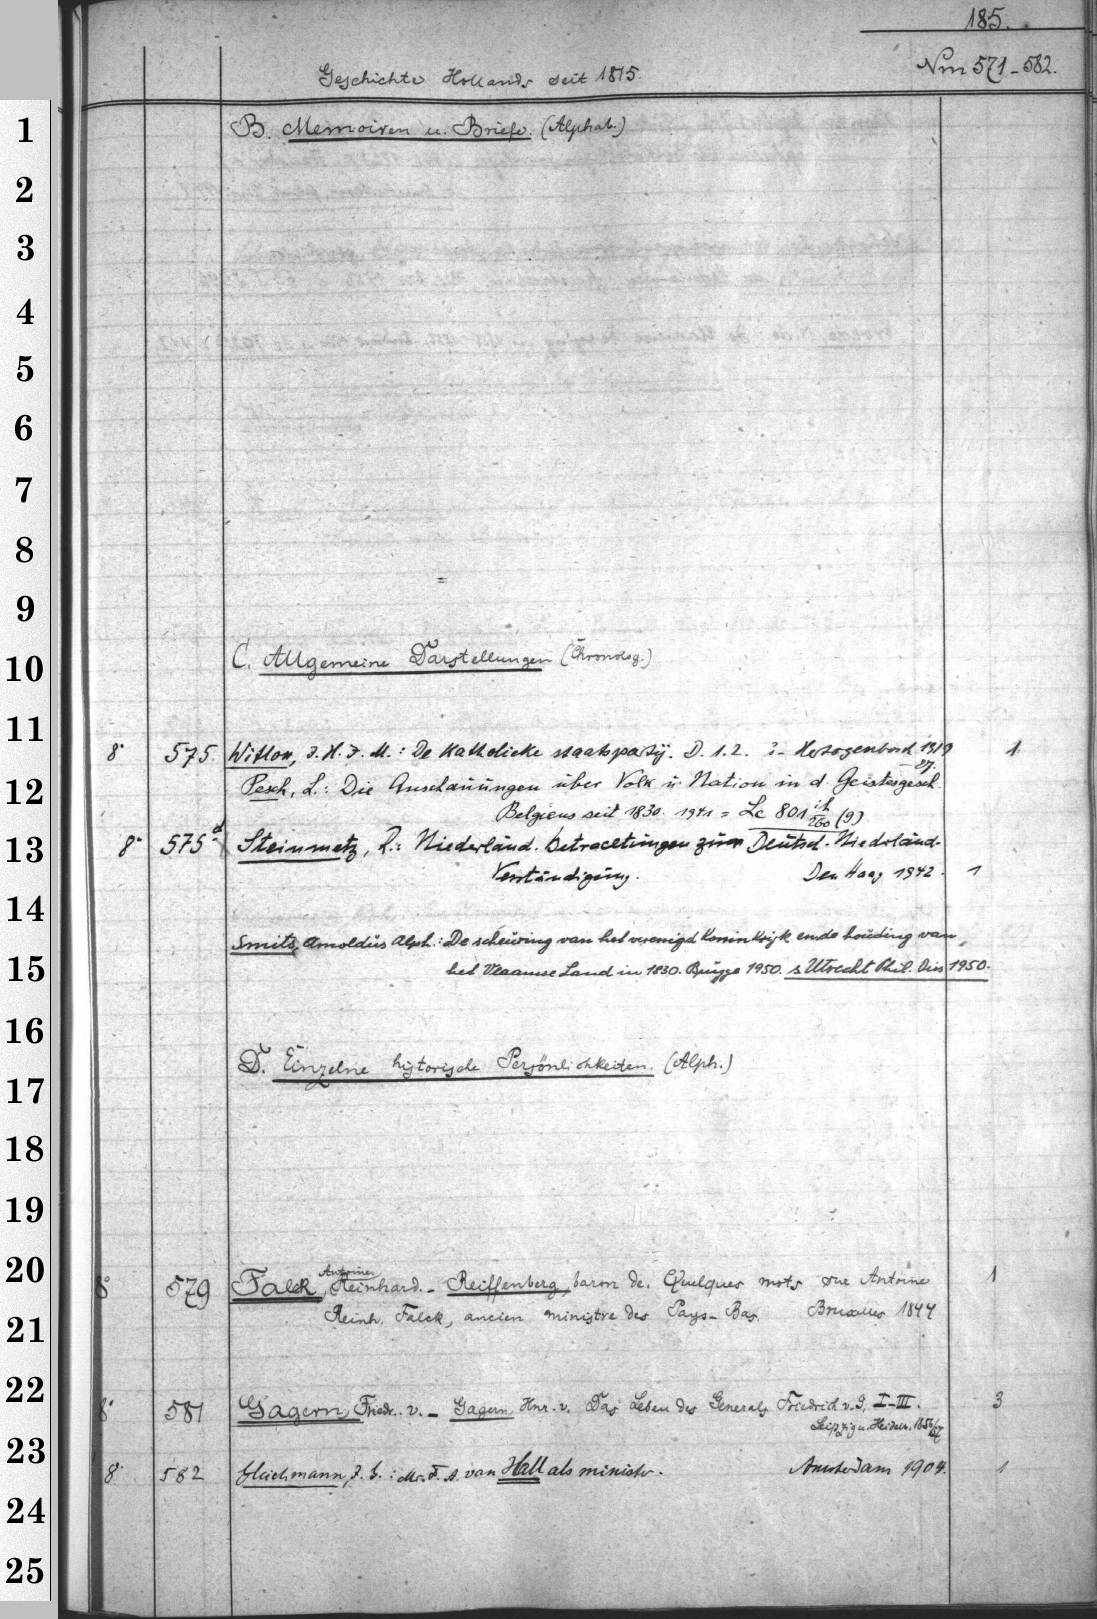 185.
Geschichte Hollands seit 1815.
Nm 571-582.
1
B. Memoiren u. Briefe. (Alphab.)
2
3
4
5
6
7
8
=
9
10
C. Allgemeine Darstellungen (Chronolog.)
11
8° 575. Witlox, J. H. J. M.: De Katholieke staatspartij. D. 1. 2. Hertogenbosch 1919 1
27.
12
Pesch, L.: Die Anschauungen über Volk u. Nation in d. Geistesgesch.
Belgiens seit 1830. 1941 = Lc 801 ih/260 (9)
13
8° 575 d Steinmetz, R.: Niederländ. Betrachtungen zum Deutsch-Niederländ.
Verständigung. Den Haag 1942. 1
14
Smits, Arnoldus Alph.: De scheuring van het verenigd Koninkrijk en de houding van
15
het Vlaamse Land in 1830. Brugge 1950. & Utrecht Phil. Diss 1950.
16
D. Einzelne historische Persönlichkeiten. (Alph.)
17
18
19
20
Antoine
8° 579 Falck, Reinhard. - Reiffenberg, baron de. Quelques mots sur Antoine 1
Reinh. Falck, ancien ministre des Pays-Bas Bruxelles 1844
21
22
8° 581 Gagern, Friedr. v. - Gagern, Hnr. v. Das Leben des Generals Friedrich v. G. I-III. 3
Leipzig u. Heidelb. 1856/57
23
8° 582 Gleichmann, J. G.: Mr. F. A. van Hall als minister. Amsterdam 1904. 1
24
25